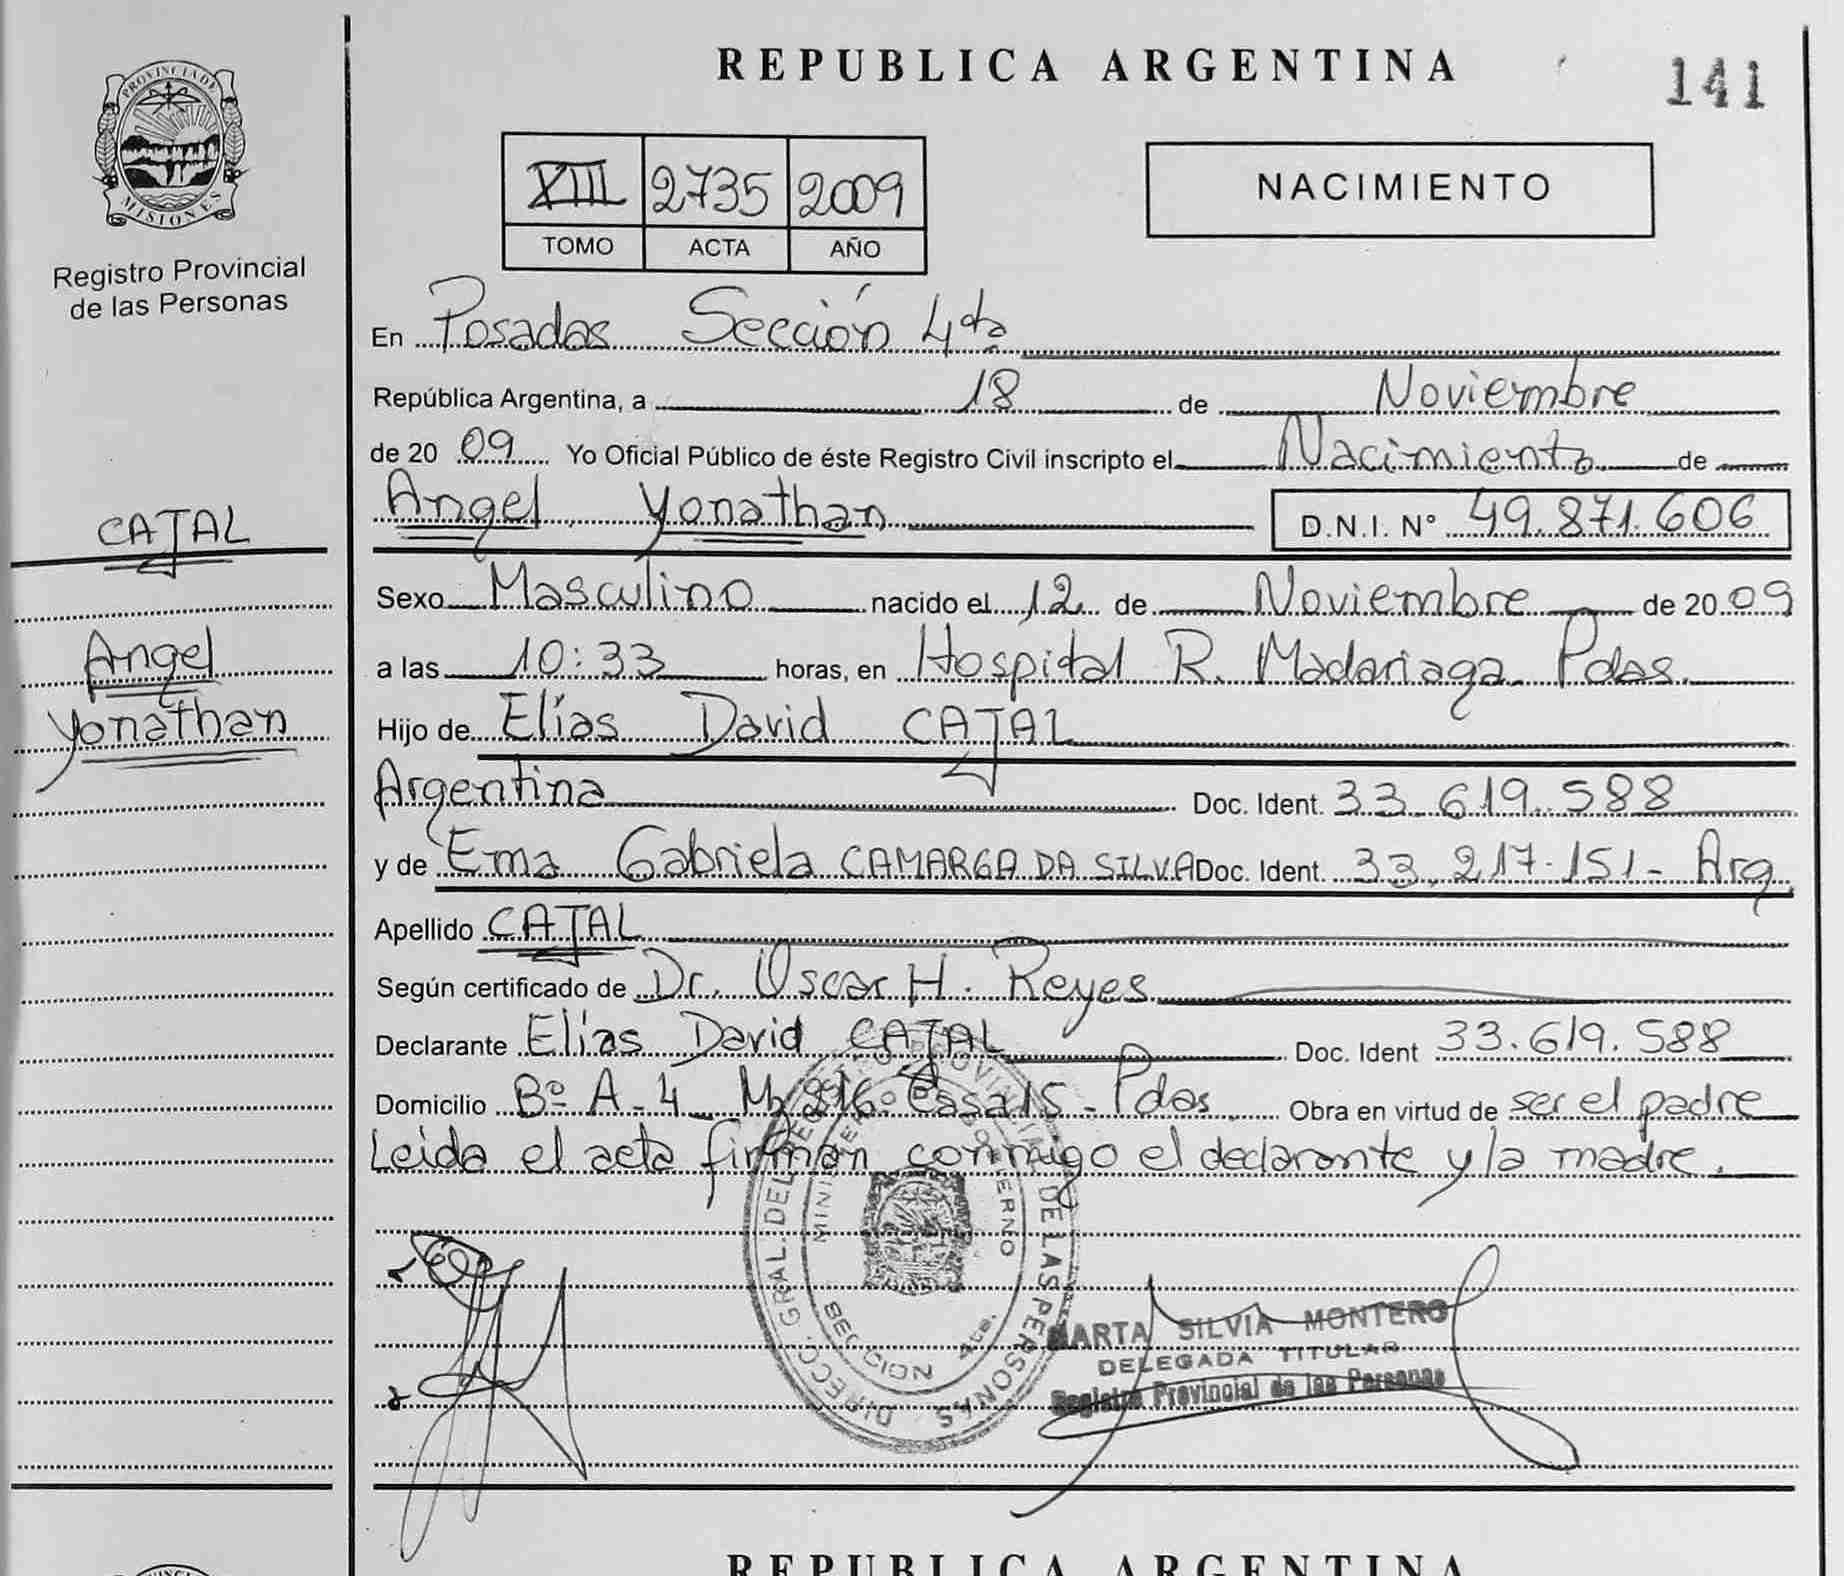 REPUBLICA ARGENTINA
141
PROVINCIA DE
MISIONES
Registro Provincial
de las Personas
XIII 2735 2009
TOMO ACTA AÑO
NACIMIENTO
En Posadas Sección 4ta
República Argentina, a 18 de Noviembre
de 20 09 Yo Oficial Público de éste Registro Civil inscripto el Nacimiento de
Angel Yonathan D.N.I. N° 49.871.606
CAJAL
Angel
Yonathan
Sexo Masculino nacido el 12 de Noviembre de 20 09
a las 10:33 horas, en Hospital R. Madariaga Pdas.
Hijo de Elías David CAJAL
Argentina Doc. Ident. 33.619.588
y de Ema Gabriela CAMARGA DA SILVA Doc. Ident. 33.217.151- Arg
Apellido CAJAL
Según certificado de Dr. Oscar H. Reyes
Declarante Elías David CAJAL Doc. Ident 33.619.588
Domicilio Bº A-4 Casa 15 - Pdas. Obra en virtud de ser el padre
Leida el acta firman conmigo el declarante y la madre.
DIRECC. GRAL. DEL REGISTRO PROVINCIAL DE LAS PERSONAS
MINISTERIO GOBIERNO
SECCION 4ta.
MARTA SILVIA MONTERO
DELEGADA TITULAR
Registro Provincial de las Personas
REPUBLICA ARGENTINA